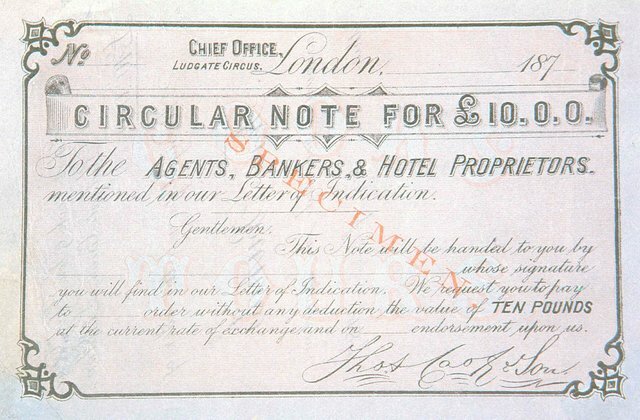 No. CHIEF OFFICE, LUDGATE CIRCUS. London, 187
CIRCULAR NOTE FOR £10.0.0.
To the AGENTS, BANKERS, & HOTEL PROPRIETORS.
mentioned in our Letter of Indication.
SPECIMEN.
Gentlemen.
This Note will be handed to you by
whose signature
you will find in our Letter of Indication. We request you to pay
to order without any deduction the value of TEN POUNDS
at the current rate of exchange, and on endorsement upon us.
Thos Cook & Son.